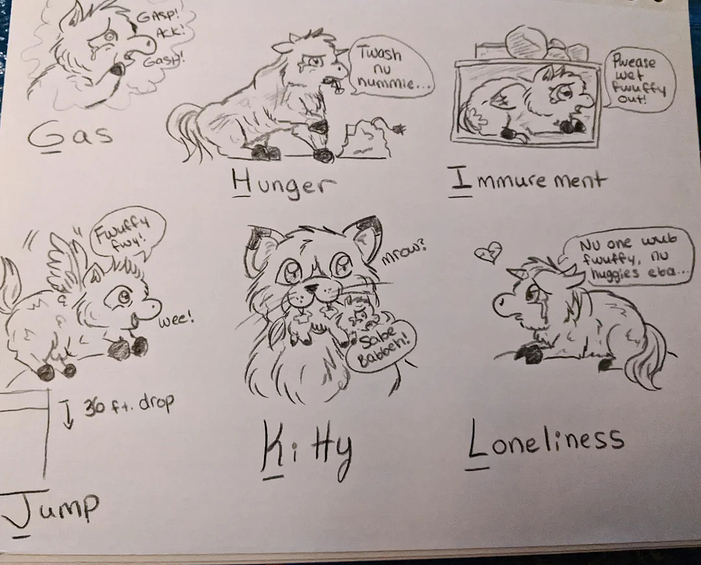 GASP!
ACK!
GASH!
Gas
Twash
nu
nummie...
Hunger
Pwease
wet
fwuffy
out!
Immurement
Fwuffy
fwy!
wee!
36 ft. drop
Jump
mrow?
Sabe
Babbeh!
Kitty
Nu one wub
fwuffy, nu
huggies eba...
Loneliness